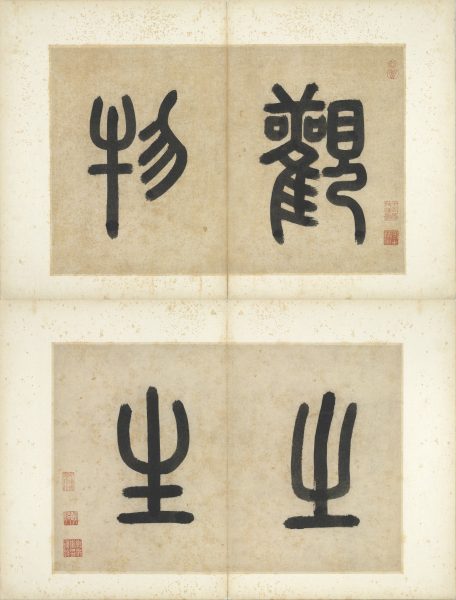 觀物
之生